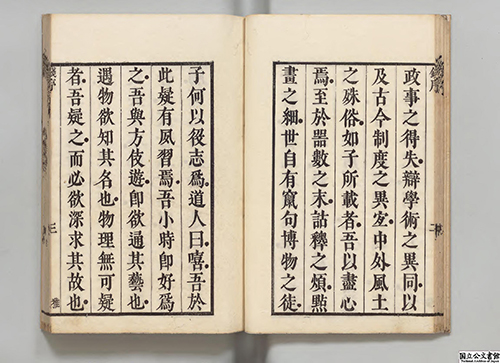 政事之得失辯學術之異同以
及古今制度之異宜中外風土
之殊俗如子所載者吾以盡心
焉至於器數之末詁釋之煩點
畫之細世自有竄句博物之徒
子何以役志爲道人曰嘻吾於
此疑有夙習焉吾小時卽好爲
之吾與方伎遊卽欲通其藝也
遇物欲知其名也物理無可疑
者吾疑之而必欲深求其故也
三
国立公文書館
National Archives of Japan